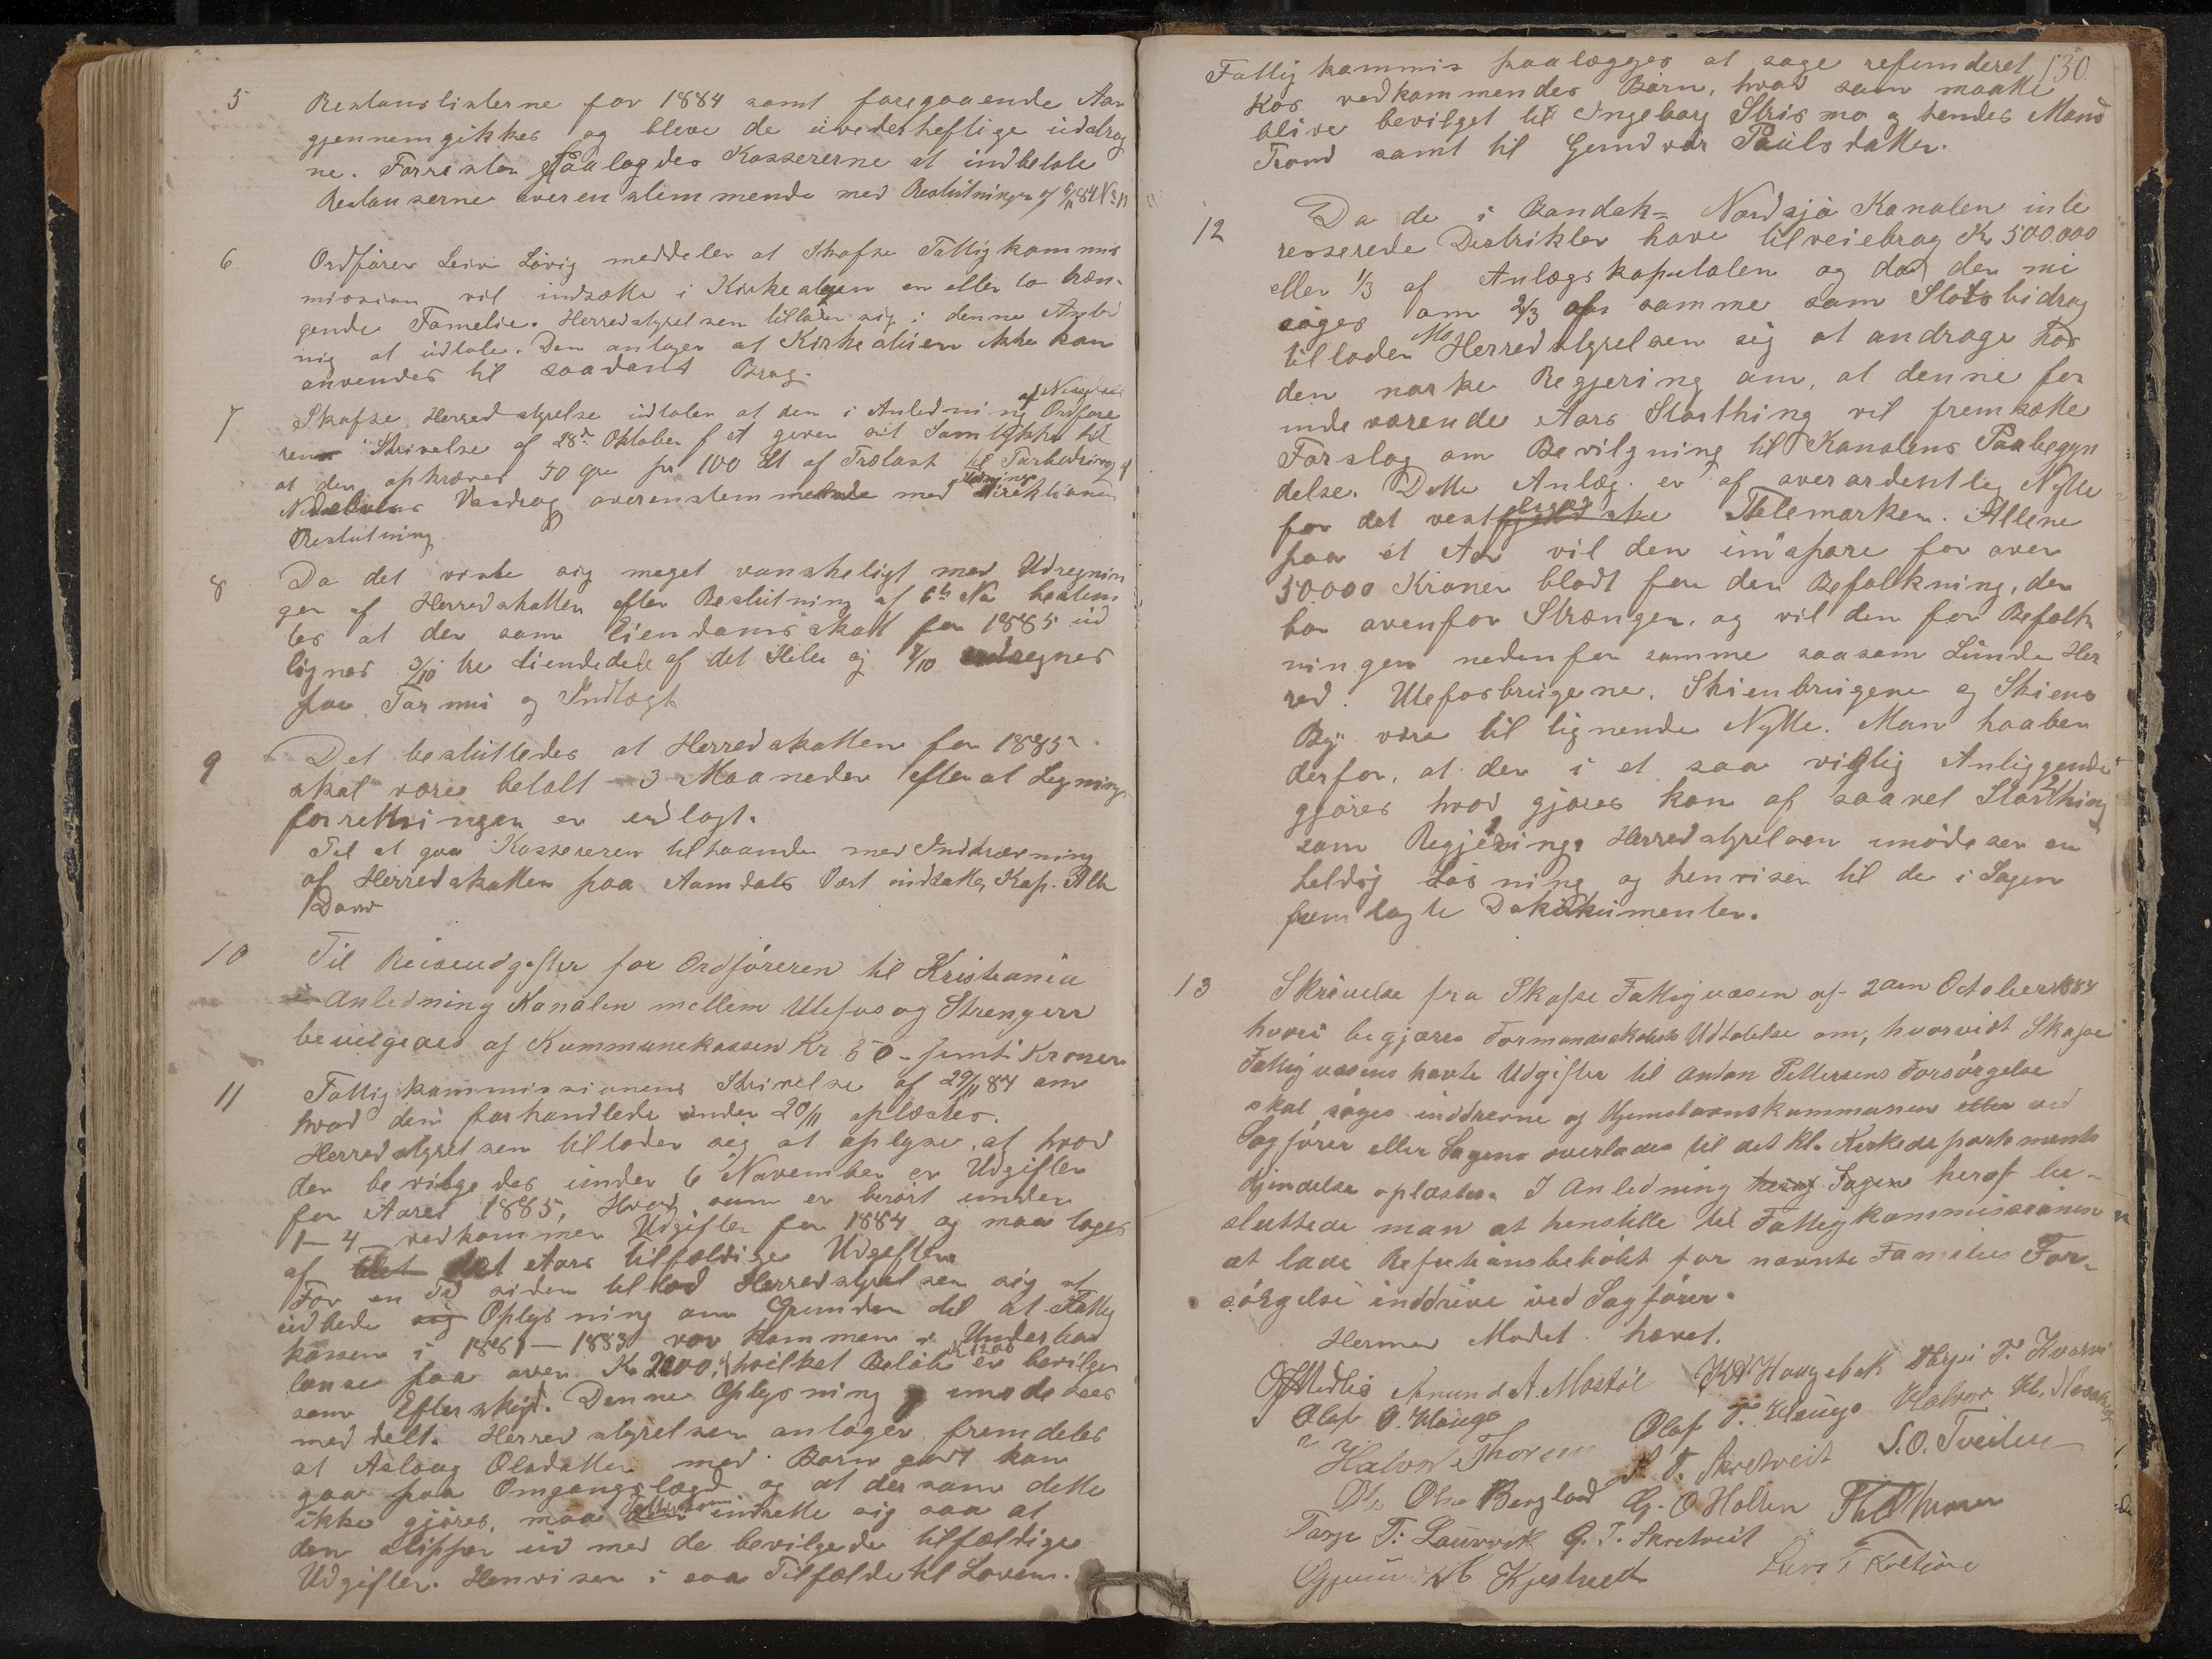 5 Restanslisterne for 1884 samt foregaaende Aar
gjennemgikkes og bleve de uvederheftige uddrag
ne. Forresten Paalagdes Kassererne at indbetale
Restanserne overenstemmende med Beslutningen af 6/11 84 No 11
6 Ordförer Leiv Lövig meddeler at Skafse Fattigkommis
mission vil indsætte i Kirkealsuen en eller to træn-
gende Famelie. Herredstyrelsen tillader sig i denne Anled
nig at udtale. Den antager at Kirkealsuen ikke kan
anvendes til saadant Brug.
7 Skafse Herredstyrelse udtaler at den i Anledning af Ordföre
rens Skrivelse af 28de Oktober f A giver sit Samtykke til
at der opkræves 50 Öre pr 100 Kr af Trælast til Forbedring af
Vasdrag overenstemmende med Direktionens
Beslutning
8 Da det viste sig meget vanskeligt med Udregnin
gen af Herredskatten efter Beslutning af 6te No bestem
tes at der som Eiendomsskatt for 1885 ud
lignes 3/10 tre tiendedele af det Hele og 7/10 udregnes
paa Formui og Indtægt
9 Det besluttedes at Herredskatten for 1885
skal være betalt 3 Maaneder efter at Ligning
forretningen er endlagt.
Til at gaa Kassereren tilhaande med Inddrævning
af Herredskatten paa Aamdals Værk indsattes Kap. Alb
Daw
10 Til Reiseudgifter for Ordföreren til Kristiania
i Anledning Kanalen mellem Ulefos og Strengen
bevilgedes af Kommunekassen Kr 50 - femti Kroner
11 Fattigkommissionens Skrivelse af 29/11 84 om
hvad den forhandlede under 20/11 oplæstes.
Herredstyrelsen tillader sig at oplyse, at hvad
der bevilgedes under 6 November er Udgifter
for Aaret 1885, Hvad som er berört under
1-4 vedkommer Udgifter for 1884 og maa tages
af det Aars Tilfældige Udgifter.
For en Tid siden tillod Herredstyrelsen sig at
udbede sig Oplysning om Grunden til at Fattig
kassen i 1881-1883 var kommen i Underbal
lanse paa over Kr 2000, hvilket Belöb er bevilget
som Efterskud. Denne Oplysning imödesees
meddelt. Herredstyrelsen antager fremdeles
at Aslaug Olsdatter med Barn godt kan
gaa paa Omgangslægd og at dersom dette
ikke gjöres, maa Fattigkom indrette sig saa at
den slipper ud med de bevilgede tilfældige
Udgifter. Henviser i saa Tilfælde til Loven.
130.
Fattigkommis paalægges at söge refunderet
hos vedkommendes Börn, hvad som maatte
blive bevilget til Ingeborg Strismo og hendes Mand
Trond samt til Gundvor Paulsdatter.
12 Da de i Bandak= Nordsjö Kanalen inte
resserede Distrikter have tilveiebrag Kr 500000
eller 1/3 af Anlægskapitalen og da der nu
söges om 2/3 af samme som Statsbidrag
tillader Mo Herredstyrelsen sig at andrage hos
den norske Regjering om, at denne for
indeværende Aars Storthing vil fremsætte
Forslag om Bevilgning til Kanalens Paabegyn
delse. Dette Anlæg er af overordentlig Nytte
for det vestfjeldske Thelemarken. Allene
paa et Aar vil den indspare for over
50000 Kroner blodt for den Befolkning, der
bor ovenfor Strængen, og vil den for Befolk
ningen nedenfor samme saasom Lunde Her
red. Ulefosbrugene, Skienbrugene og Skiens
By være til lignende Nytte. Man haaber
derfor, at der i et saa vigtig Anliggende
gjöres hvad gjöres kan af saavel Storthing
som Regjering. Herredstyrelsen imödeser en
heldig Lösning og henviser til de i Sagen
fremlagte Dokumenter.
13 Skrivelse fra Skafse Fattigvæsen af 2den October 1884
hvori begjæres Formandskabets Udtalelse om, hvorvidt Skafse
Fattigvæsens havte Udgifter til Anton Pettersens Forsörgelse
skal söges inddrevne af Hjemstavnskommunen eller ved
Sagförer eller Sagens overlades til det Kl. Kirkedepartements
Kjendelse oplæstes. I Anledning Sagen heraf be-
sluttede man at henstille til Fattigkommissionen
at lade Refutionsbelöbet for nævnte Families For-
sörgelse inddrive ved Sagförer.
Hermed Mödet hævet.
OJMidlis Anund A. Mostöl KK Haugebak Terje T. Kvarvi
Olaf O. Hauge Olaf T. Hauge Halvor
Halvor Thor S. T. Skretveit S.O. Tveiten
Ole Olsen Bergland G. O Holten
Tarje T. Laurvik G. T. Skretveit
Gjermund Kjestveit Leiv T